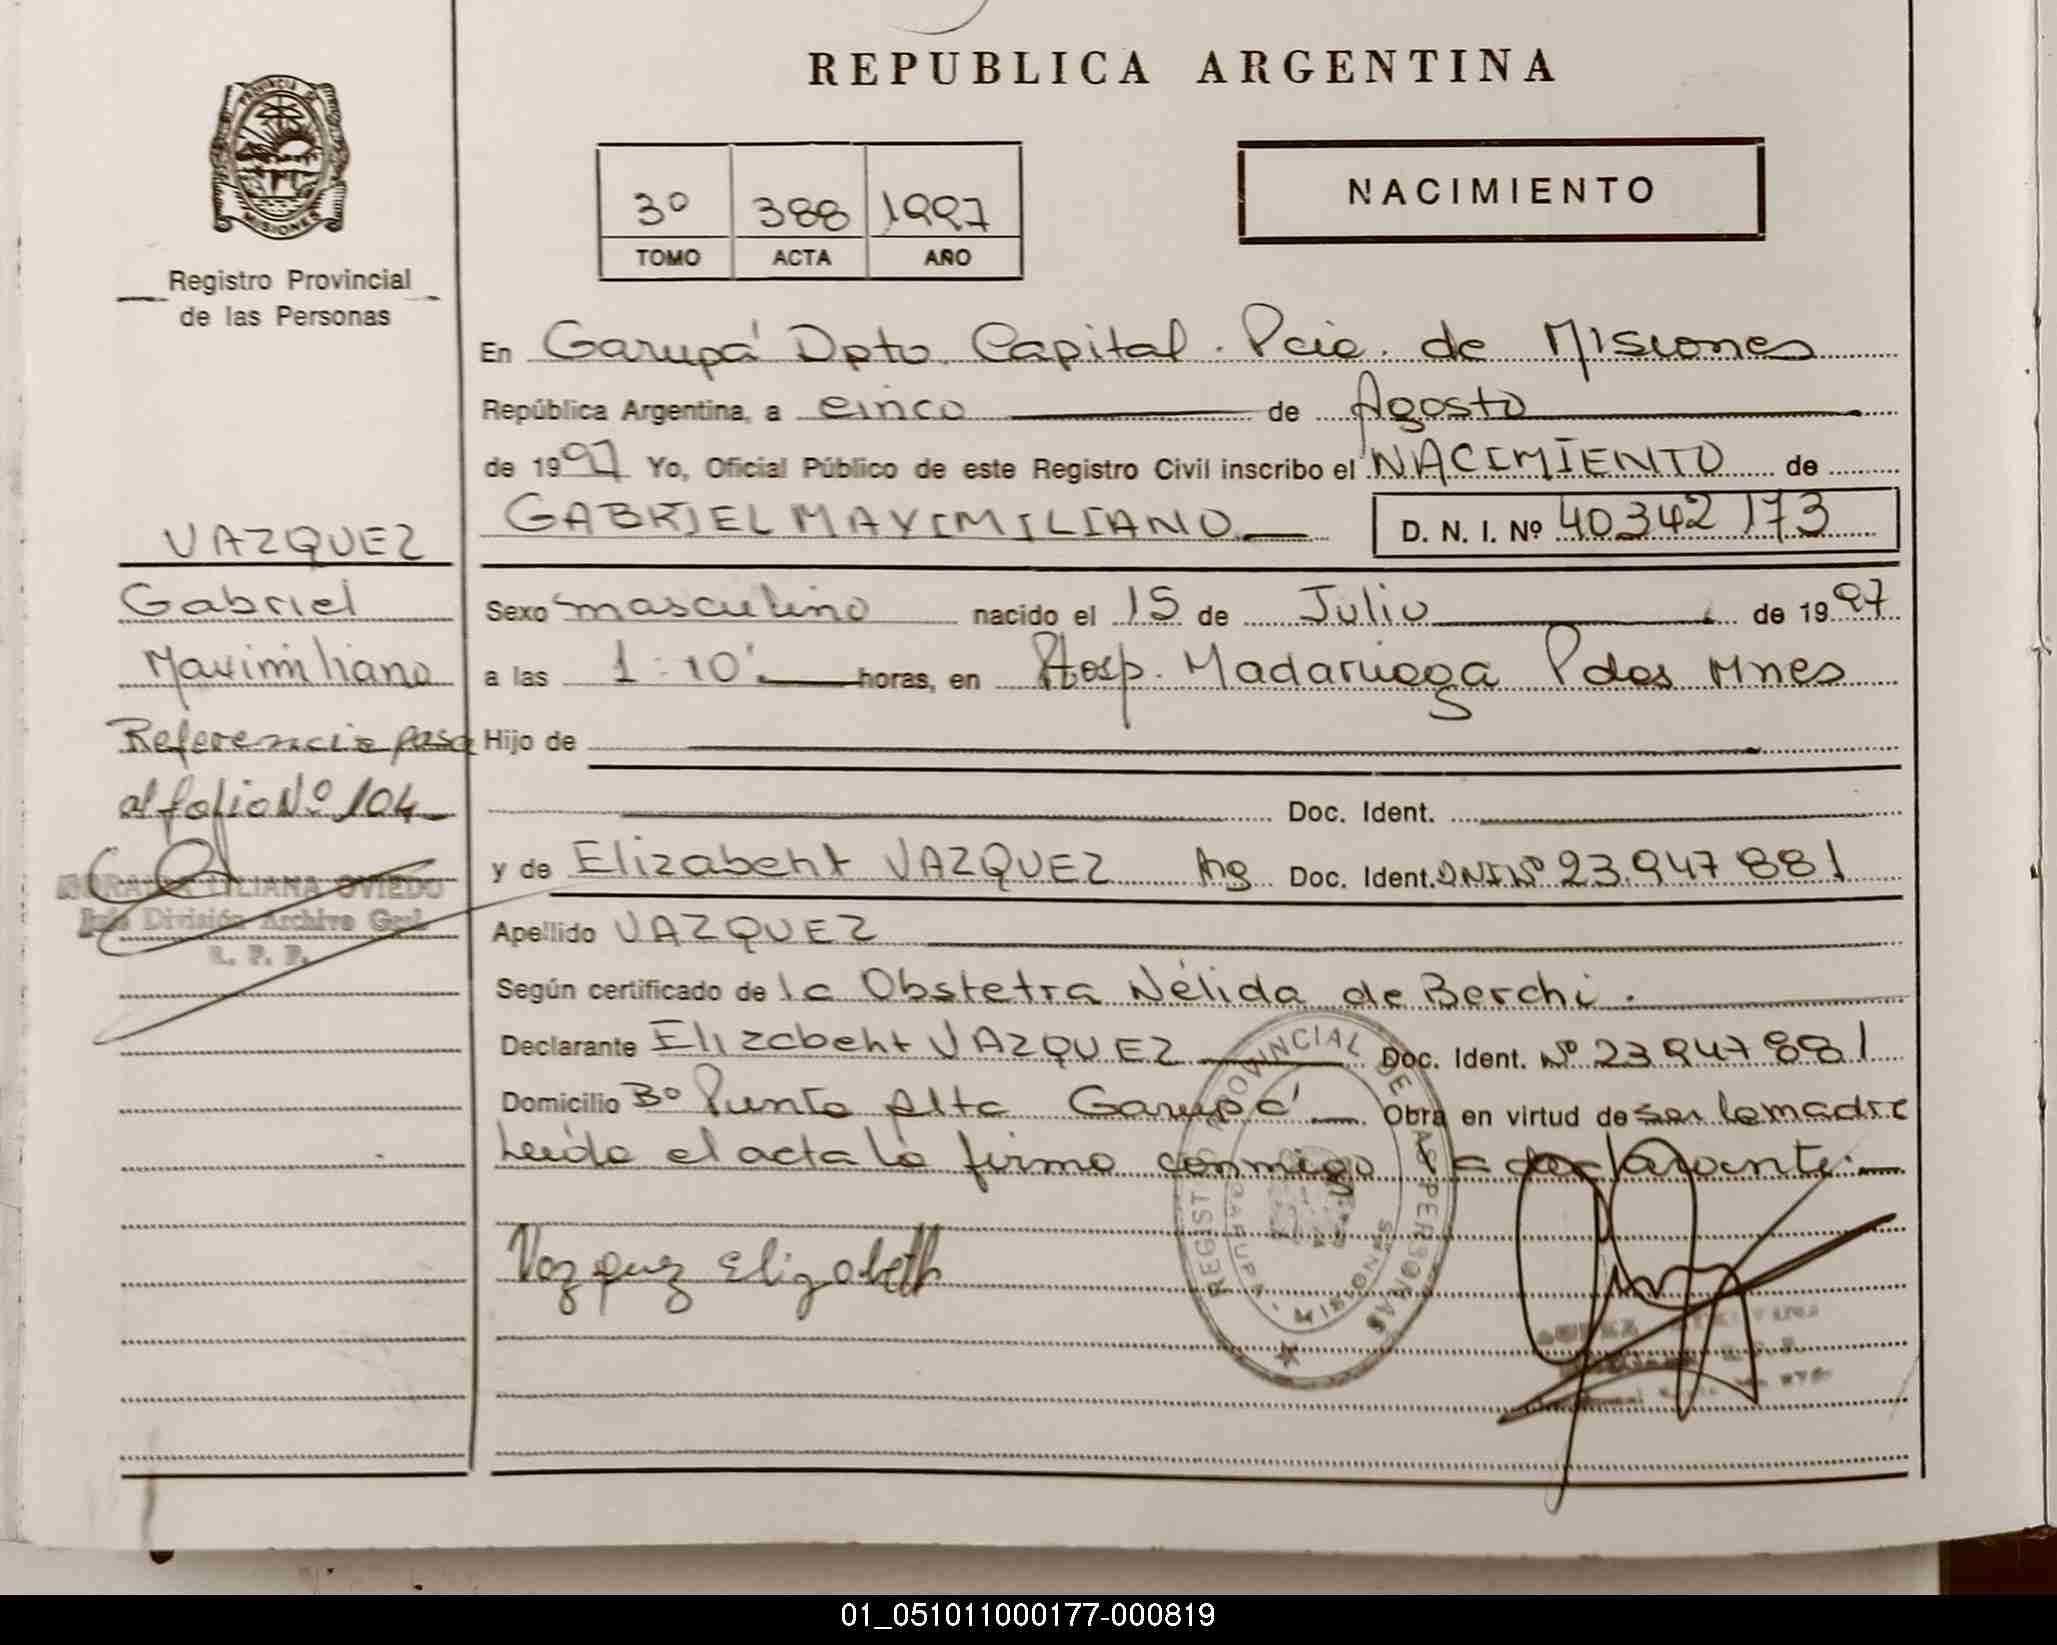 REPUBLICA ARGENTINA
PROVINCIA DE
MISIONES
Registro Provincial
de las Personas
3º 388 1997
TOMO ACTA AÑO
NACIMIENTO
En Garupá Dpto. Capital. Pcia. de Misiones
República Argentina, a cinco de Agosto
de 1997 Yo, Oficial Público de este Registro Civil inscribo el NACIMIENTO de
GABRIEL MAXIMILIANO D. N. I. Nº 40342173
Sexo masculino nacido el 15 de Julio de 1997
a las 1:10' horas, en Hosp. Madariaga Pdas Mnes
Hijo de
Doc. Ident.
y de Elizabeht VAZQUEZ Arg Doc. Ident. DNI Nº 23.947881
Apellido VAZQUEZ
Según certificado de la Obstetra Nélida de Berchi.
Declarante Elizabeht VAZQUEZ Doc. Ident. Nº 23947881
Domicilio Bº Punta Alta Garupá Obra en virtud de ser la madre
Leida el acta la firma conmigo la declarante.
Vazquez Elizabeth
REGISTRO PROVINCIAL DE LAS PERSONAS
GARUPA - MISIONES
VAZQUEZ
Gabriel
Maximiliano
Referencia pasa
al folio Nº 104
LILIANA OVIEDO
Jefe División Archivo Gral
R. P. P.
01_051011000177-000819